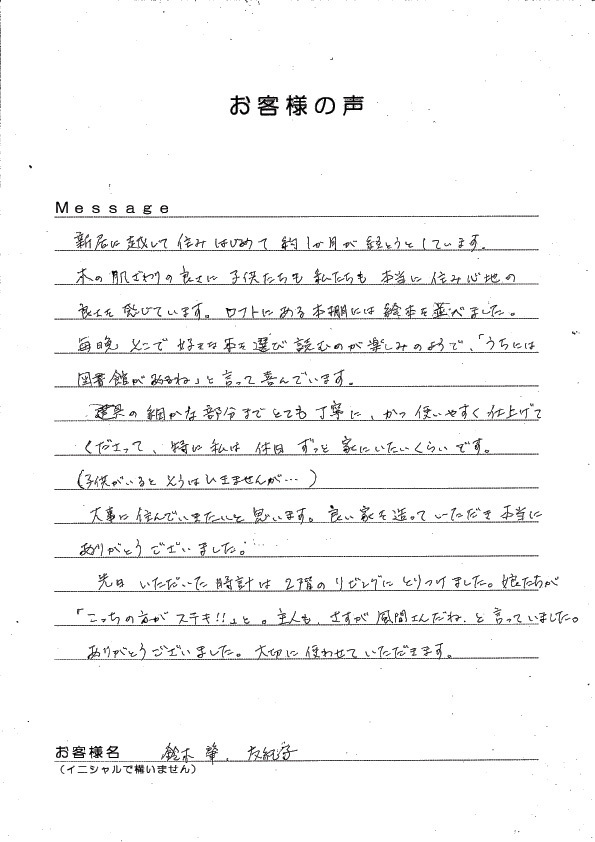 お客様の声
Message
新居に越して住みはじめて約1か月が経とうとしています。
木の肌ざわりの良さに子供たちも私たちも本当に住み心地の
良さを感じています。ロフトにある本棚には絵本を並べました。
毎晩そこで好きな本を選び読むのが楽しみのようで、「うちには
図書館があるね」と言って喜んでいます。
建具の細かな部分までとても丁寧に、かつ使いやすく仕上げて
くださって、特に私は休日ずっと家にいたいくらいです。
(子供がいるとそうはいきませんが…)
大事に住んでいきたいと思います。良い家を造っていただき本当に
ありがとうございました。
先日いただいた時計は2階のリビングにとりつけました。娘たちが
「こっちの方がステキ!!」と。主人も、さすが風間さんだね、と言っていました。
ありがとうございました。大切に使わせていただきます。
お客様名 鈴木 肇、友紀子
(イニシャルで構いません)